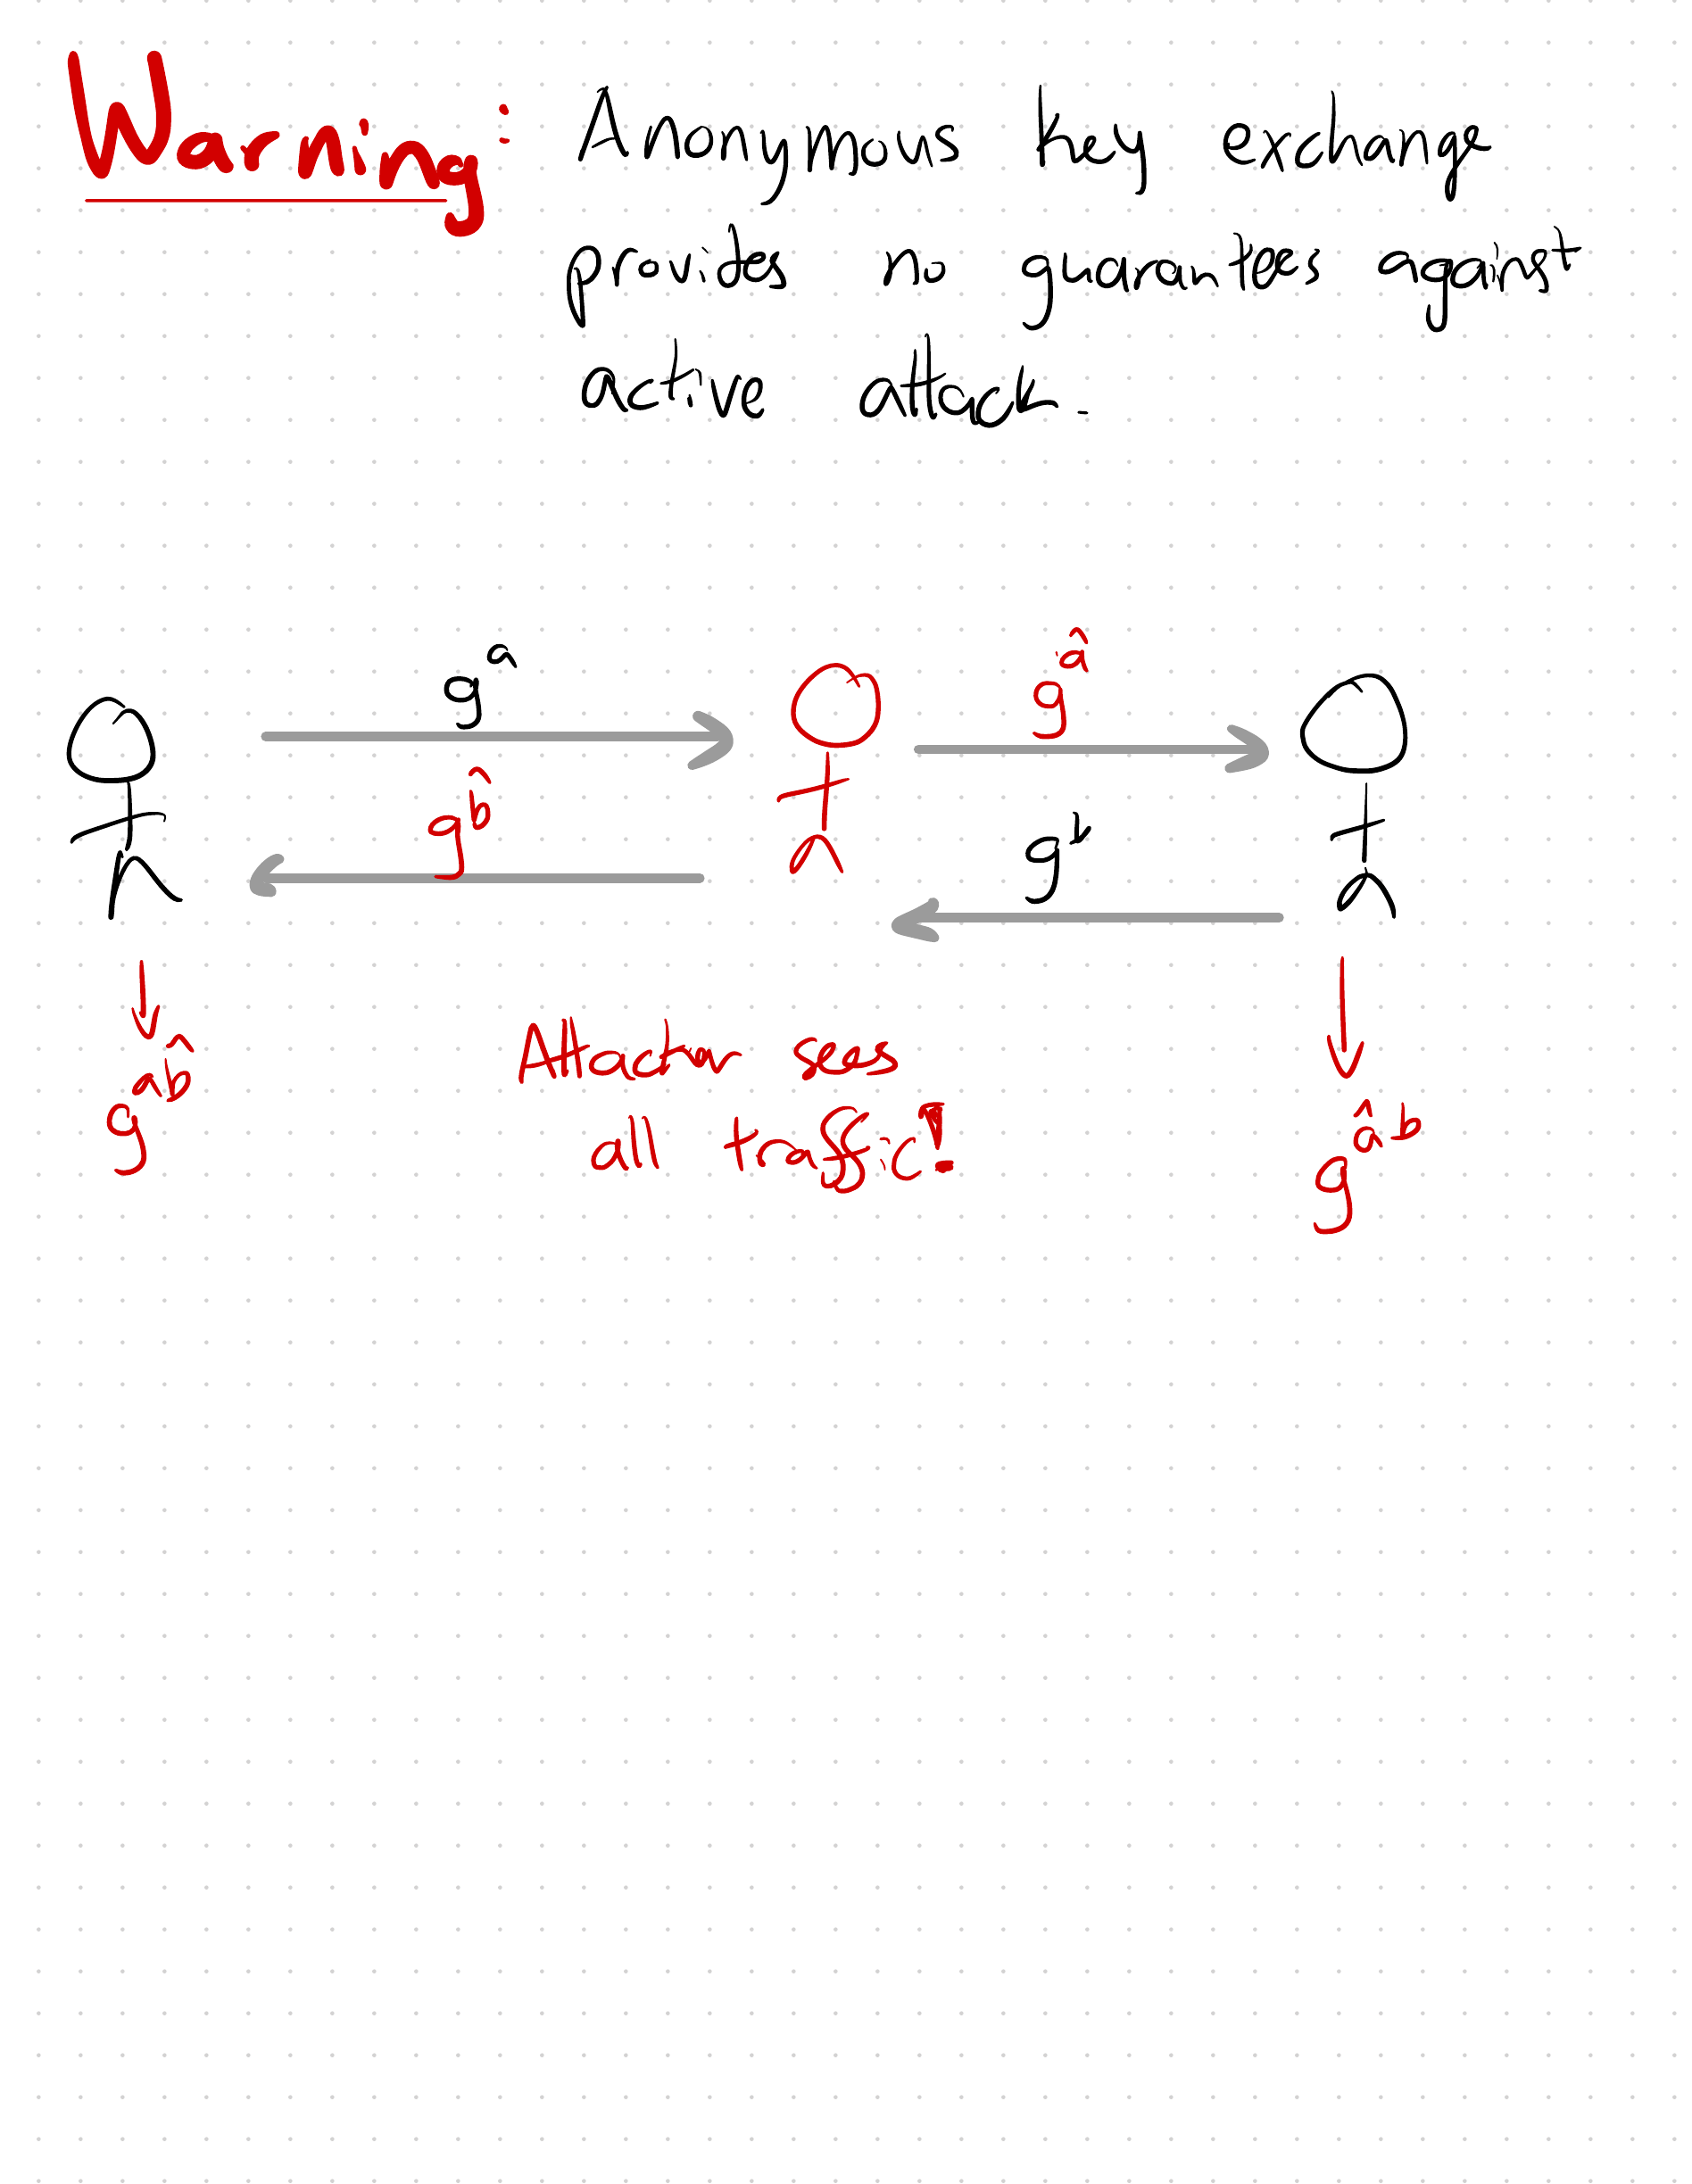 Warning: Anonymous key exchange
provides no guarantees against
active attack.
g^a
g^â
g^b̂
g^b
g^ab̂
Attacker sees
all traffic!
g^âb